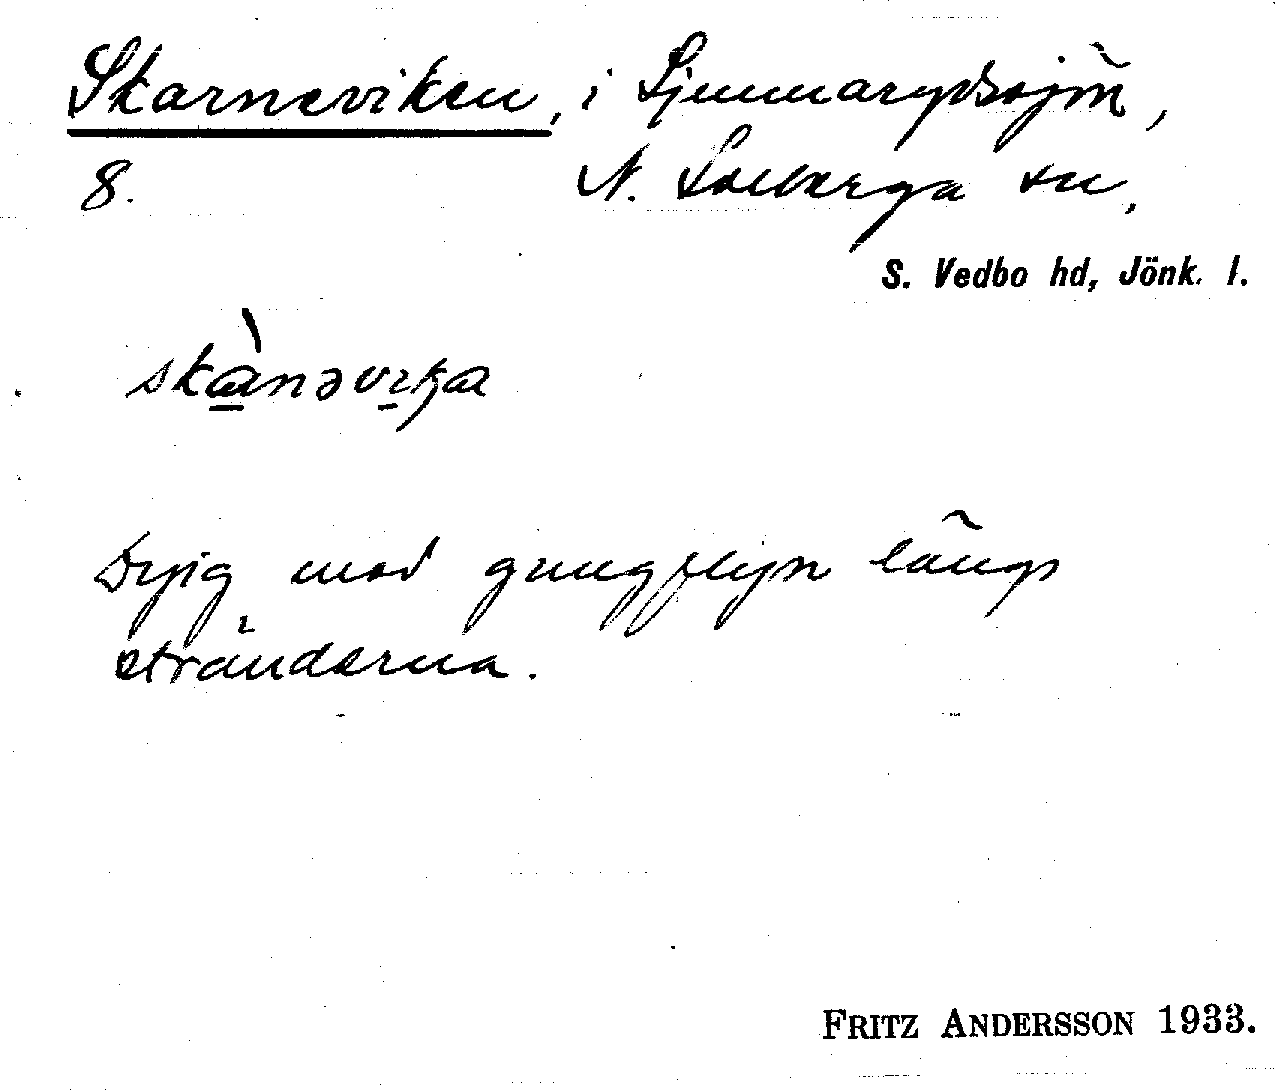 Skarneviken, i Ljunnarydssjön,
8. N. Solberga sn,
S. Vedbo hd, Jönk. l.
skànəvika
Dyig med gungflyn längs
stränderna.
FRITZ ANDERSSON 1933.